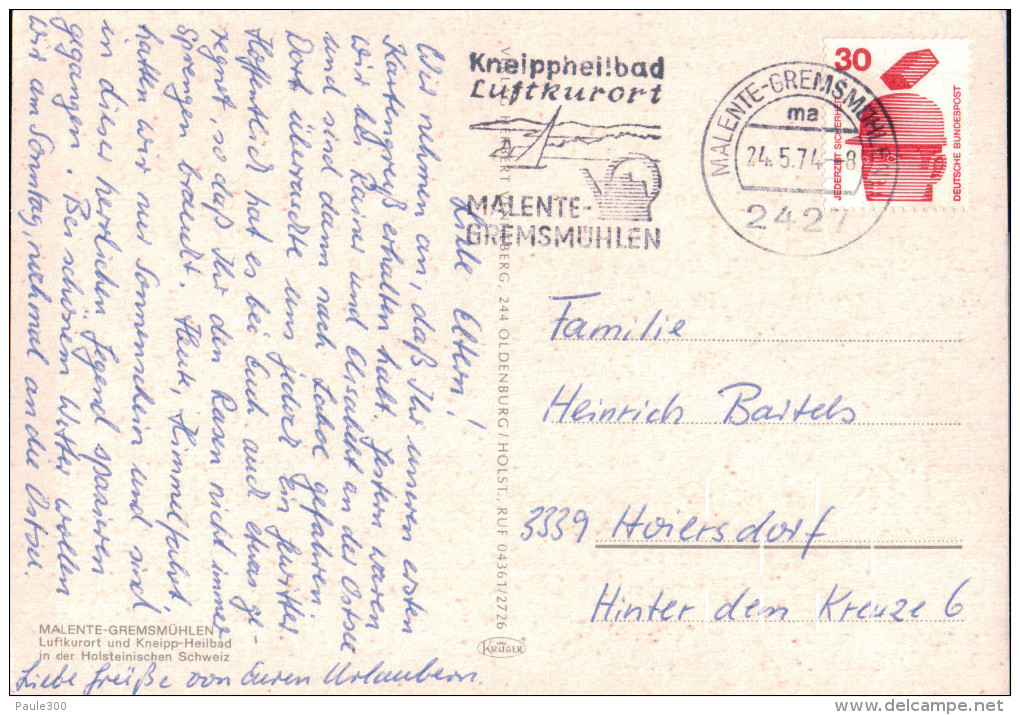 Kneippheilbad
Luftkurort
MALENTE-
GREMSMÜHLEN
MALENTE-GREMSMÜHLEN
ma
24.5.74-8
2427
30
JEDERZEIT SICHERHEIT
DEUTSCHE BUNDESPOST
Liebe Eltern!
Wir nehmen an, daß Ihr unseren ersten
Kartengruß erhalten habt. Gestern waren
wir bei und an der Ostsee
und sind dann nach gefahren.
Dort überraschte uns jedoch ein Gewitter.
Hoffentlich hat es bei Euch auch etwas ge-
regnet, so daß Ihr den Rasen nicht immer
Sprengen braucht. Heute, Himmelfahrt,
hatten wir nur Sonnenschein und sind
in dieser herrlichen Gegend spazieren
gegangen. Bei schönem Wetter wollen
wir am Sonntag nochmal an die Ostsee.
Liebe Grüße von Euren Urlaubern.
Familie
Heinrich Bartels
3339 Hoiersdorf
Hinter dem Kreuze 6
BERG, 244 OLDENBURG/HOLST., RUF 04361/2726
KRÜGER
MALENTE-GREMSMÜHLEN
Luftkurort und Kneipp-Heilbad
in der Holsteinischen Schweiz
Paule300
delcampe.net